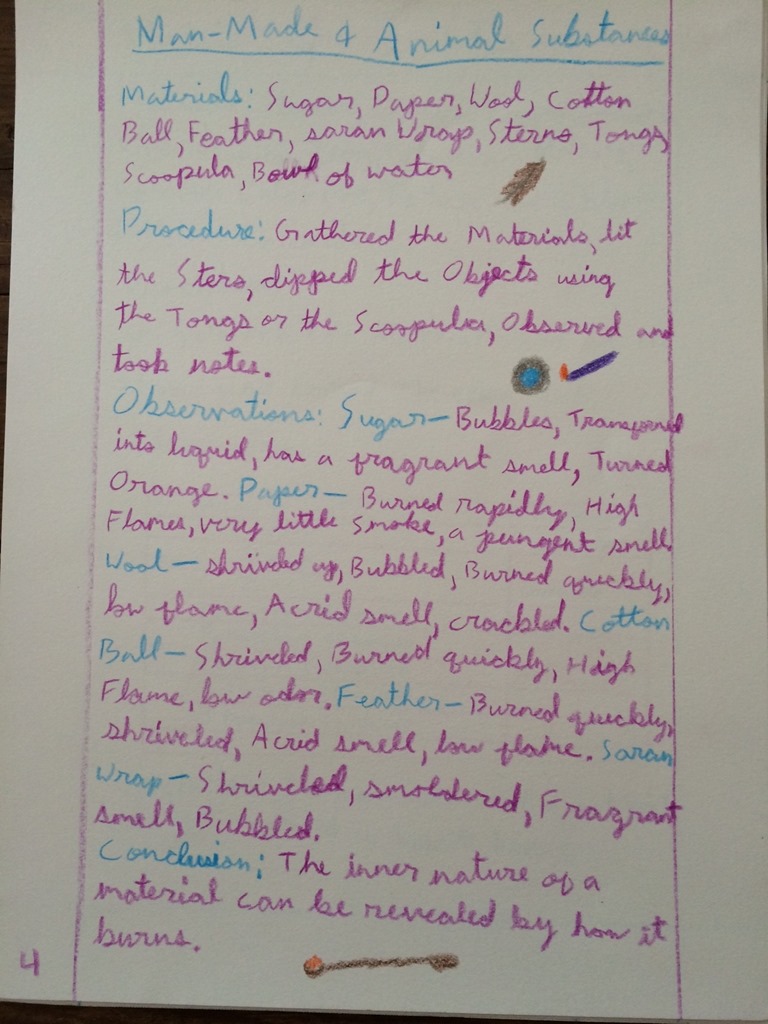 Man-Made & Animal Substances
Materials: Sugar, Paper, Wool, Cotton
Ball, Feather, saran Wrap, Sterno, Tongs,
Scoopula, Bowl of water
Procedure: Gathered the Materials, lit
the Stero, dipped the Objects using
the Tongs or the Scoopula, Observed and
took notes.
Observations: Sugar— Bubbles, Transformed
into liquid, has a fragrant smell, Turned
Orange. Paper— Burned rapidly, High
Flames, very little smoke, a pungent smell.
Wool— shriveled up, Bubbled, Burned quickly,
low flame, Acrid smell, crackled. Cotton
Ball— Shriveled, Burned quickly, High
Flame, low odor. Feather— Burned quickly,
shriveled, Acrid smell, low flame. Saran
Wrap— Shriveled, smoldered, Fragrant
smell, Bubbled.
Conclusion: The inner nature of a
material can be revealed by how it
burns.
4